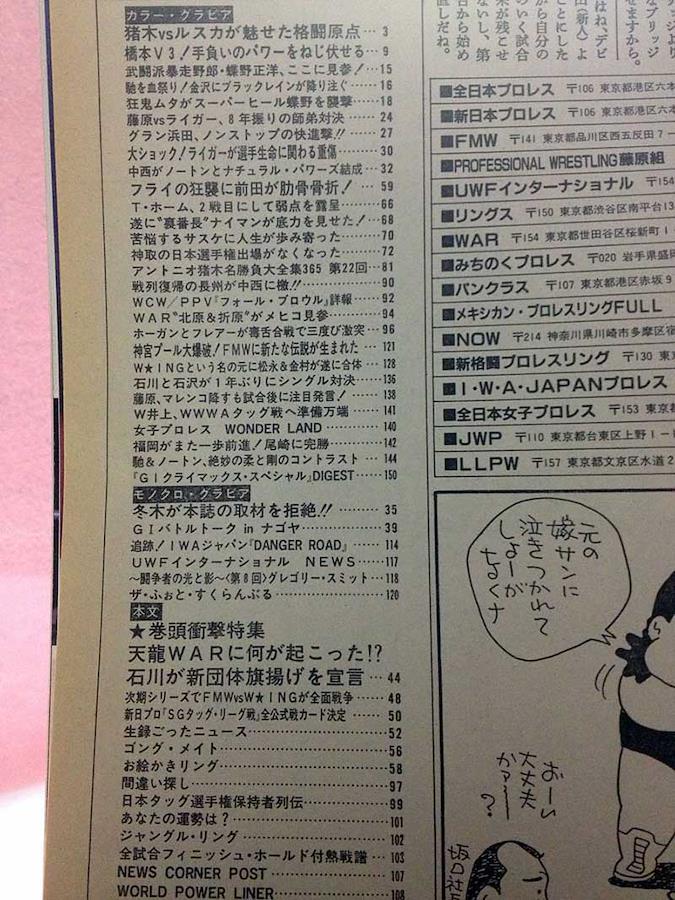 カラー・グラビア
猪木vsルスカが魅せた格闘原点…3
橋本V3!手負いのパワーをねじ伏せる…9
武闘派暴走野郎・蝶野正洋、ここに見参!…15
馳を血祭り!金沢にブラックレインが降り注ぐ…16
狂鬼ムタがスーパーヒール蝶野を襲撃…18
藤原vsライガー、8年振りの師弟対決…24
グラン浜田、ノンストップの快進撃!!…27
大ショック!ライガーが選手生命に関わる重傷…30
中西がノートンとナチュラル・パワーズ結成…32
フライの狂襲に前田が肋骨骨折!…59
T・ホーム、2戦目にして弱点を露呈…66
遂に“裏番長”ナイマンが底力を見せた!…68
苦悩するサスケに人生が歩み寄った…70
神取の日本選手権出場がなくなった…72
アントニオ猪木名勝負大全集365 第22回…81
戦列復帰の長州が中西に檄!!…90
WCW/PPV『フォール・ブロウル』詳報…92
WAR“北原&折原”がメヒコ見参…94
ホーガンとフレアーが毒舌合戦で三度び激突…96
神宮プール大爆破!FMWに新たな伝説が生まれた…121
W★INGという名の元に松永&金村が遂に合体…128
石川と石沢が1年ぶりにシングル対決…136
藤原、マレンコ降すも試合後に注目発言!…138
W井上、WWWAタッグ戦へ準備万端…141
女子プロレス WONDER LAND…140
福岡がまた一歩前進!尾崎に完勝…142
馳&ノートン、絶妙の柔と剛のコントラスト…144
『G1クライマックス・スペシャル』DIGEST…150
モノクロ・グラビア
冬木が本誌の取材を拒絶!!…35
G1バトルトーク in ナゴヤ…39
追跡!IWAジャパン『DANGER ROAD』…114
UWFインターナショナル NEWS…117
〜闘争者の光と影〜〈第8回〉グレゴリー・スミット…118
ザ・ふぉと・すくらんぶる…120
本文
★巻頭衝撃特集
天龍WARに何が起こった!?
石川が新団体旗揚げを宣言…44
次期シリーズでFMWvsW★INGが全面戦争…48
新日プロ『SGタッグ・リーグ戦』全公式戦カード決定…50
生録ごったニュース…52
ゴング・メイト…56
お絵かきリング…58
間違い探し…97
日本タッグ選手権保持者列伝…99
あなたの運勢は?…101
ジャングル・リング…102
全試合フィニッシュ・ホールド付熱戦譜…103
NEWS CORNER POST…107
WORLD POWER LINER…108
■全日本プロレス 〒106 東京都港区六本
■新日本プロレス 〒106 東京都港区六本
■FMW 〒141 東京都品川区西五反田7－
■PROFESSIONAL WRESTLING藤原組
■UWFインターナショナル 〒154
■リングス 〒150 東京都渋谷区南平台13
■WAR 〒154 東京都世田谷区桜新町1－
■みちのくプロレス 〒020 岩手県盛岡
■パンクラス 〒107 東京都港区赤坂9
■メキシカン・プロレスリングFULL
■NOW 〒214 神奈川県川崎市多摩区宿
■新格闘プロレスリング 〒130 東
■I・W・A・JAPANプロレス
■全日本女子プロレス 〒153 東京
■JWP 〒110 東京都台東区上野1－
■LLPW 〒157 東京都文京区水道2
元の
嫁サンに
泣きつかれて
しょーが
なくナ
おーい
大丈夫
かァー?
坂口社長